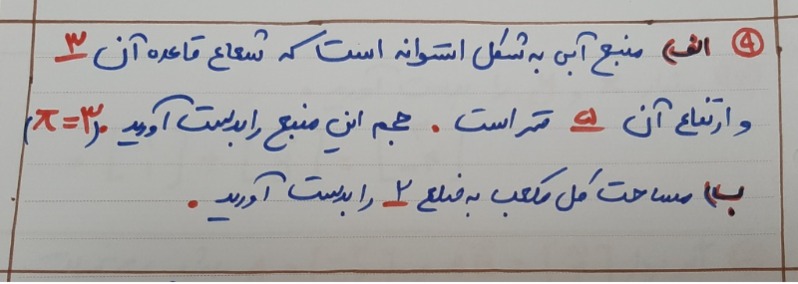 ۴ الف) منبع آبی به شکل استوانه است که شعاع قاعده آن ۳
و ارتفاع آن ۵ متر است . حجم این منبع را بدست آورید . (π=۳)
ب) مساحت کل مکعب به ضلع ۲ را بدست آورید .